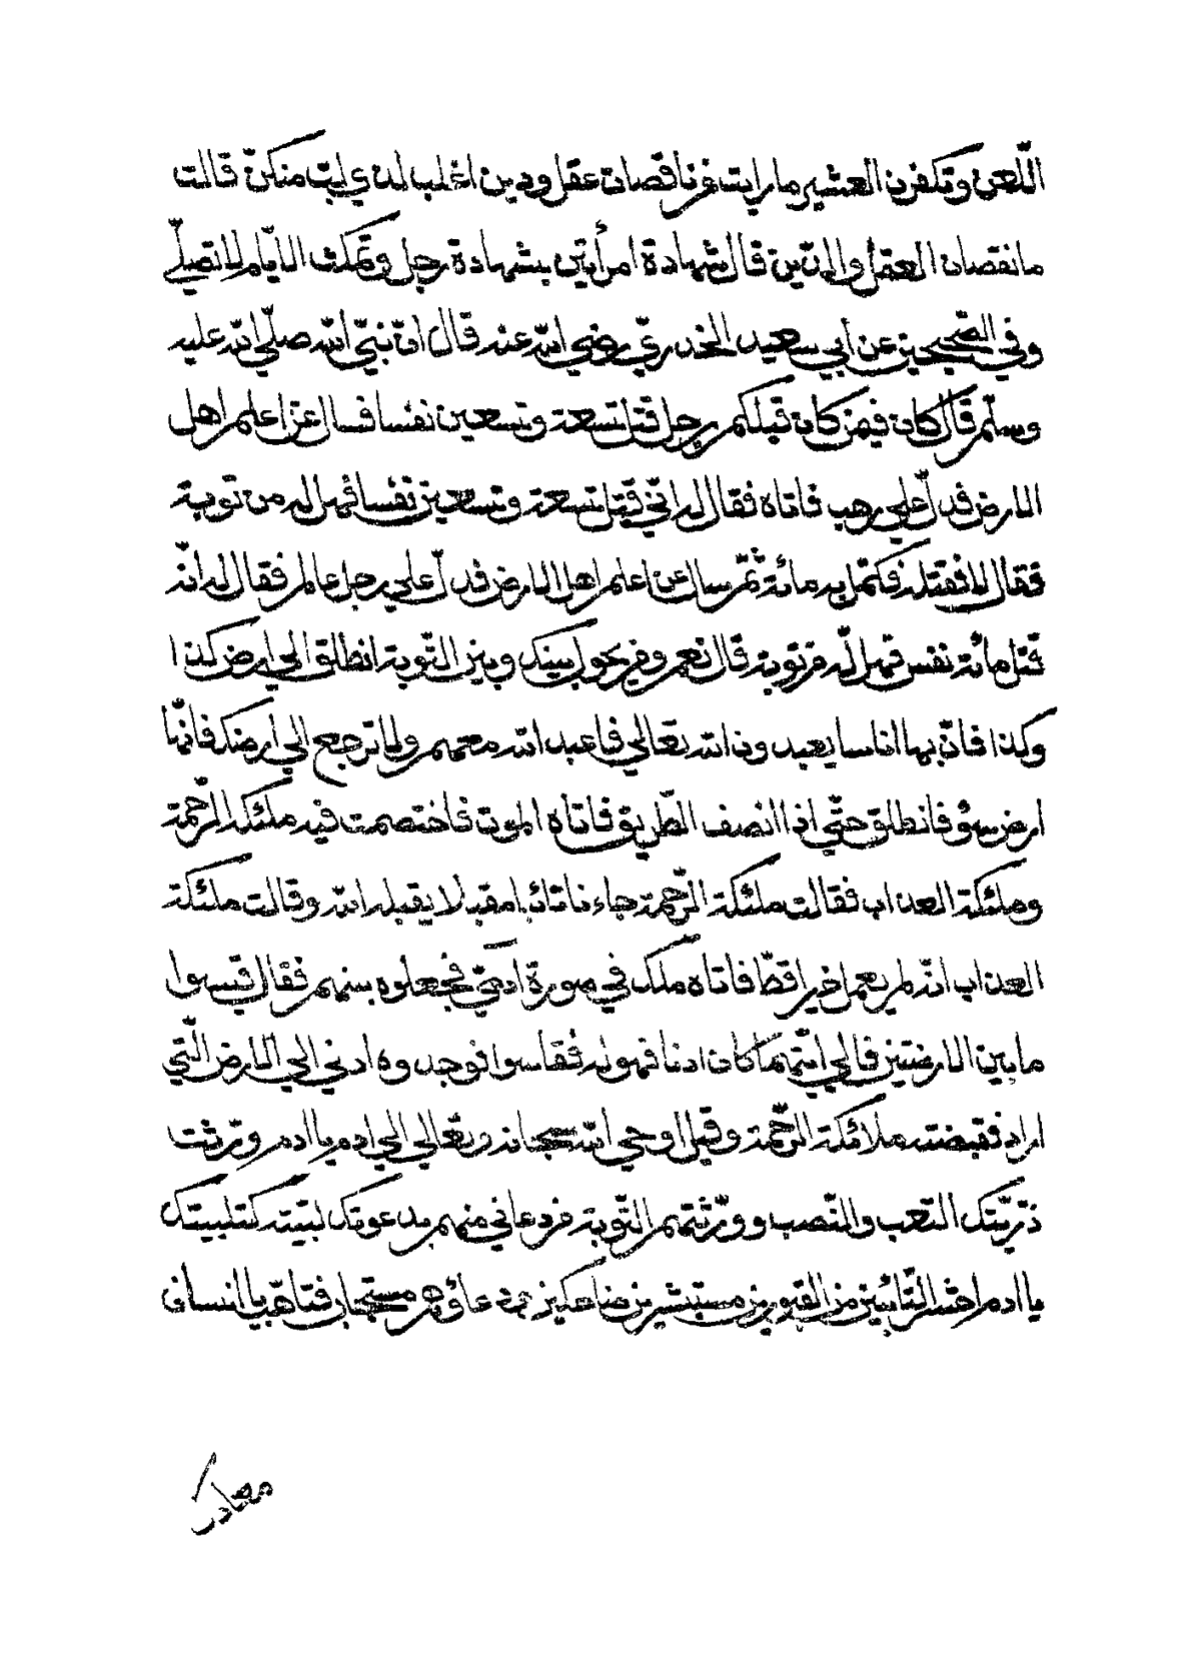 اللّعن وتكفرن العشير ما رايت من ناقصات عقل ودين اغلب لذي لبّ منكنّ قالت
ما نقصان العقل والدّين قال شهادة امرأتين بشهادة رجل وتمكث الايّام لا تصلّي
وفي الصّحيحين عن أبي سعيد الخدريّ رضي الله عنه قال انّ نبيّ الله صلّي الله عليه
وسلّم قال كان فيمن كان قبلكم رجل قتل تسعة وتسعين نفسا فسال عن اعلم اهل
الارض فدلّ علي رهب فاتاه فقال له انّي قتل تسعة وتسعين نفسا فهل له من توبة
فقال لا فقتله فكمّل به مائة ثمّ سال عن اعلم اهل الارض فدلّ علي رجل عالم فقال له انّه
قتل مائة نفس فهل لّه من توبة قال نعم ومن يحول بينك وبين التّوبة انطلق الي ارض كذا
وكذا فانّ بها اناسا يعبدون الله تعالي فاعبد الله معهم ولا ترجع الي أرضك فانّها
ارض سؤ فانطلق حتّي اذا انصف الطّريق فاتاه الموت فاختصمت فيه ملئكة الرّحمة
وملئكة العذاب فقالت ملئكة الرّحمة جاءنا تائبا مقبلا يقبله الله وقالت ملئكة
العذاب انّه لم يعمل خيرا قطّ فاتاه ملك في صورة ادميّ فجعلوه بينهم فقال قيسوا
ما بين الارضتين فالي ايّتهما كان ادنا فهو له فقاسوا فوجدوه ادني الي الارض الّتي
اراد فقبضته ملائكة الرّحمة وقيل اوحي الله سبحانه وتعالي الي ادم يا ادم ورّثت
ذرّيّتك التّعب والنّصب وورّثتهم التّوبة من دعاني منهم بدعوتك لبّيته كتلبيتك
يا ادم احشر التّائبين من القبورين مستبشرين ضاحكين ودعاؤهم مستجاب فتاهّب يا انسان